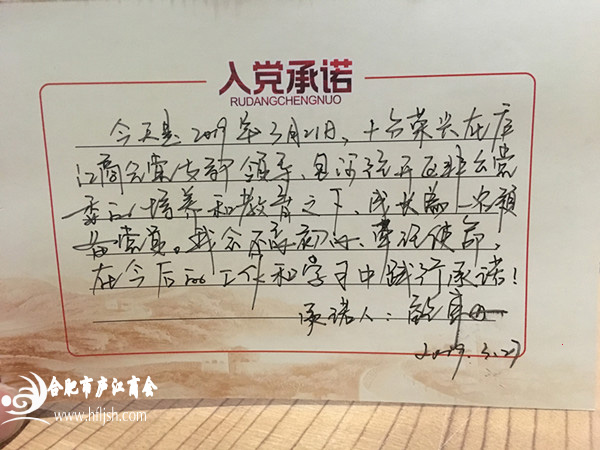 入党承诺
RUDANGCHENGNUO
今天是2019年3月21日,十分荣兴在庐
江商会党支部领导、包河经开区非公党
委的培养和教育之下,成长为一名预
备党员。我会不忘初心、牢记使命,
在今后的工作和学习中践行承诺!
承诺人:
2019.3.27
合肥市庐江商会
www.hfljsh.com